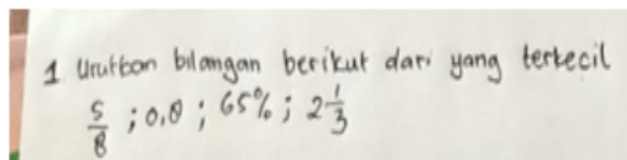 1 Urutkan bilangan berikut dari yang terkecil
5/8 ; 0,8 ; 65% ; 2 1/3